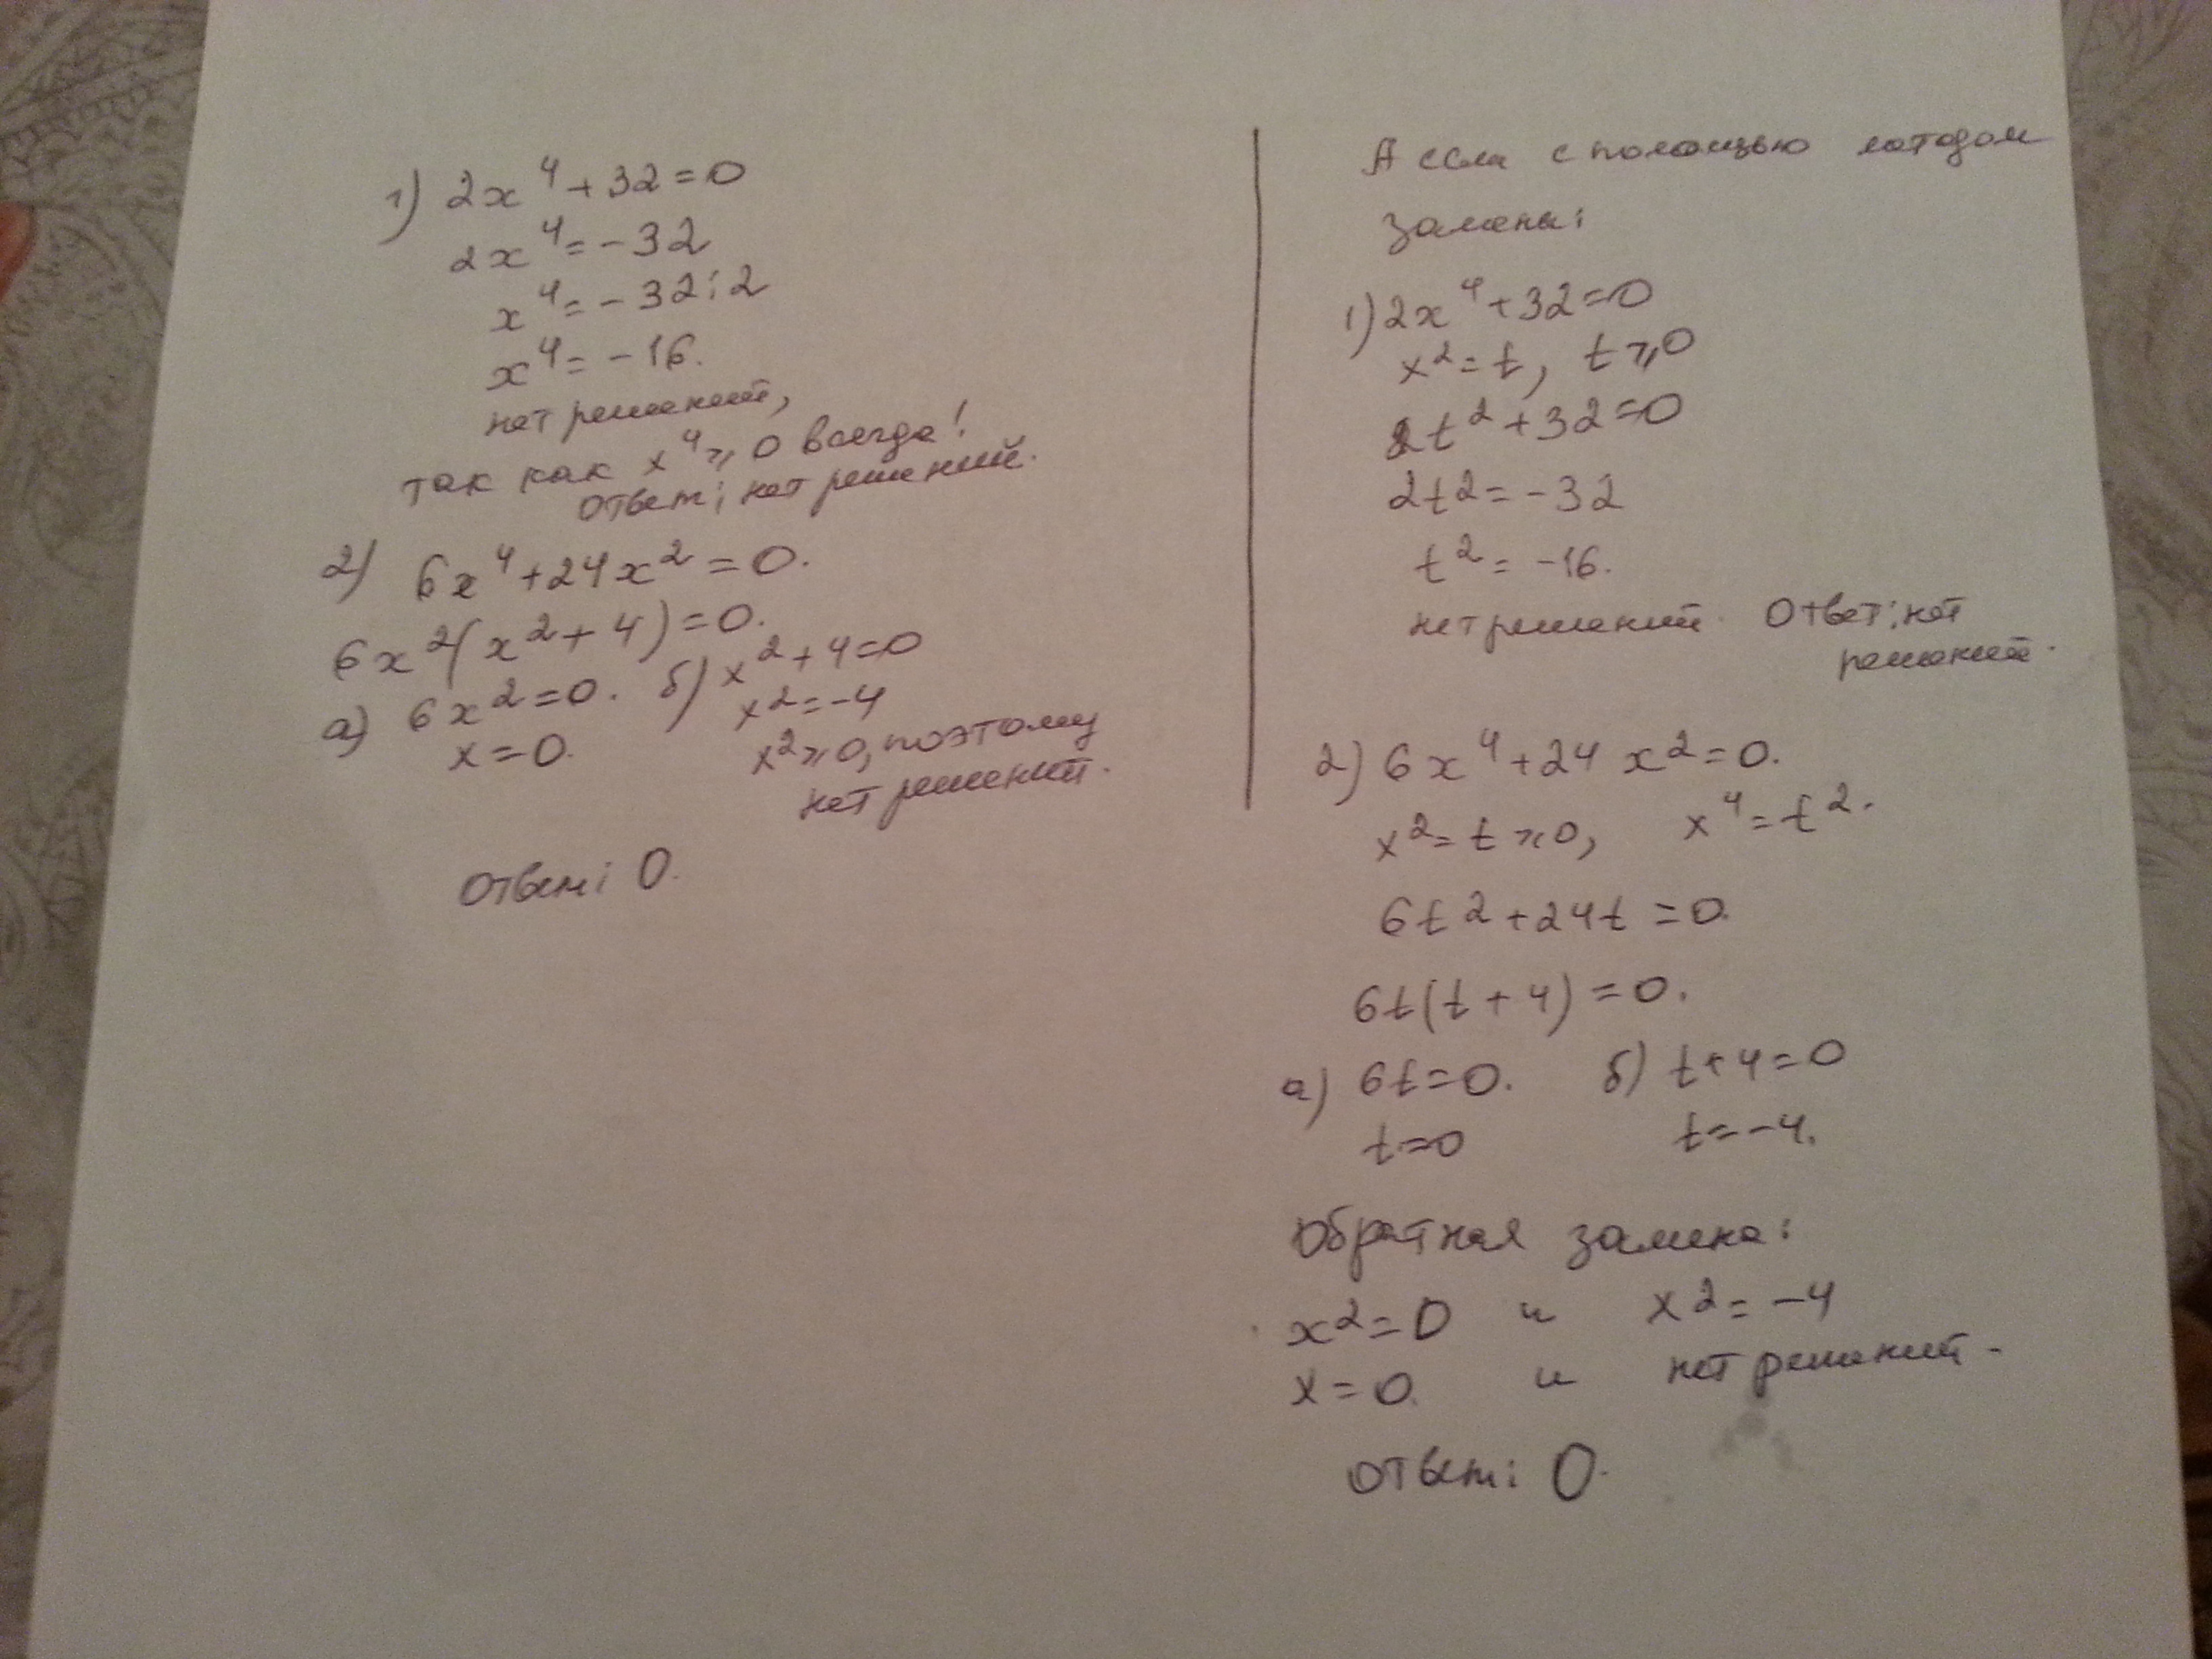 1) 2x⁴+32=0
2x⁴=-32
x⁴=-32:2
x⁴=-16.
нет решений,
так как x⁴≥0 всегда!
Ответ: нет решений.
2) 6x⁴+24x²=0.
6x²(x²+4)=0.
а) 6x²=0. б) x²+4=0
x=0. x²=-4
x²≥0, поэтому
нет решений.
Ответ: 0.
А если с помощью методом
замены:
1) 2x⁴+32=0
x²=t, t≥0
2t²+32=0
2t²=-32
t²=-16.
нет решений. Ответ: нет
решений.
2) 6x⁴+24x²=0.
x²=t≥0, x⁴=t².
6t²+24t=0.
6t(t+4)=0.
а) 6t=0. б) t+4=0
t=0 t=-4.
Обратная замена:
x²=0 и x²=-4
x=0. и нет решений.
Ответ: 0.